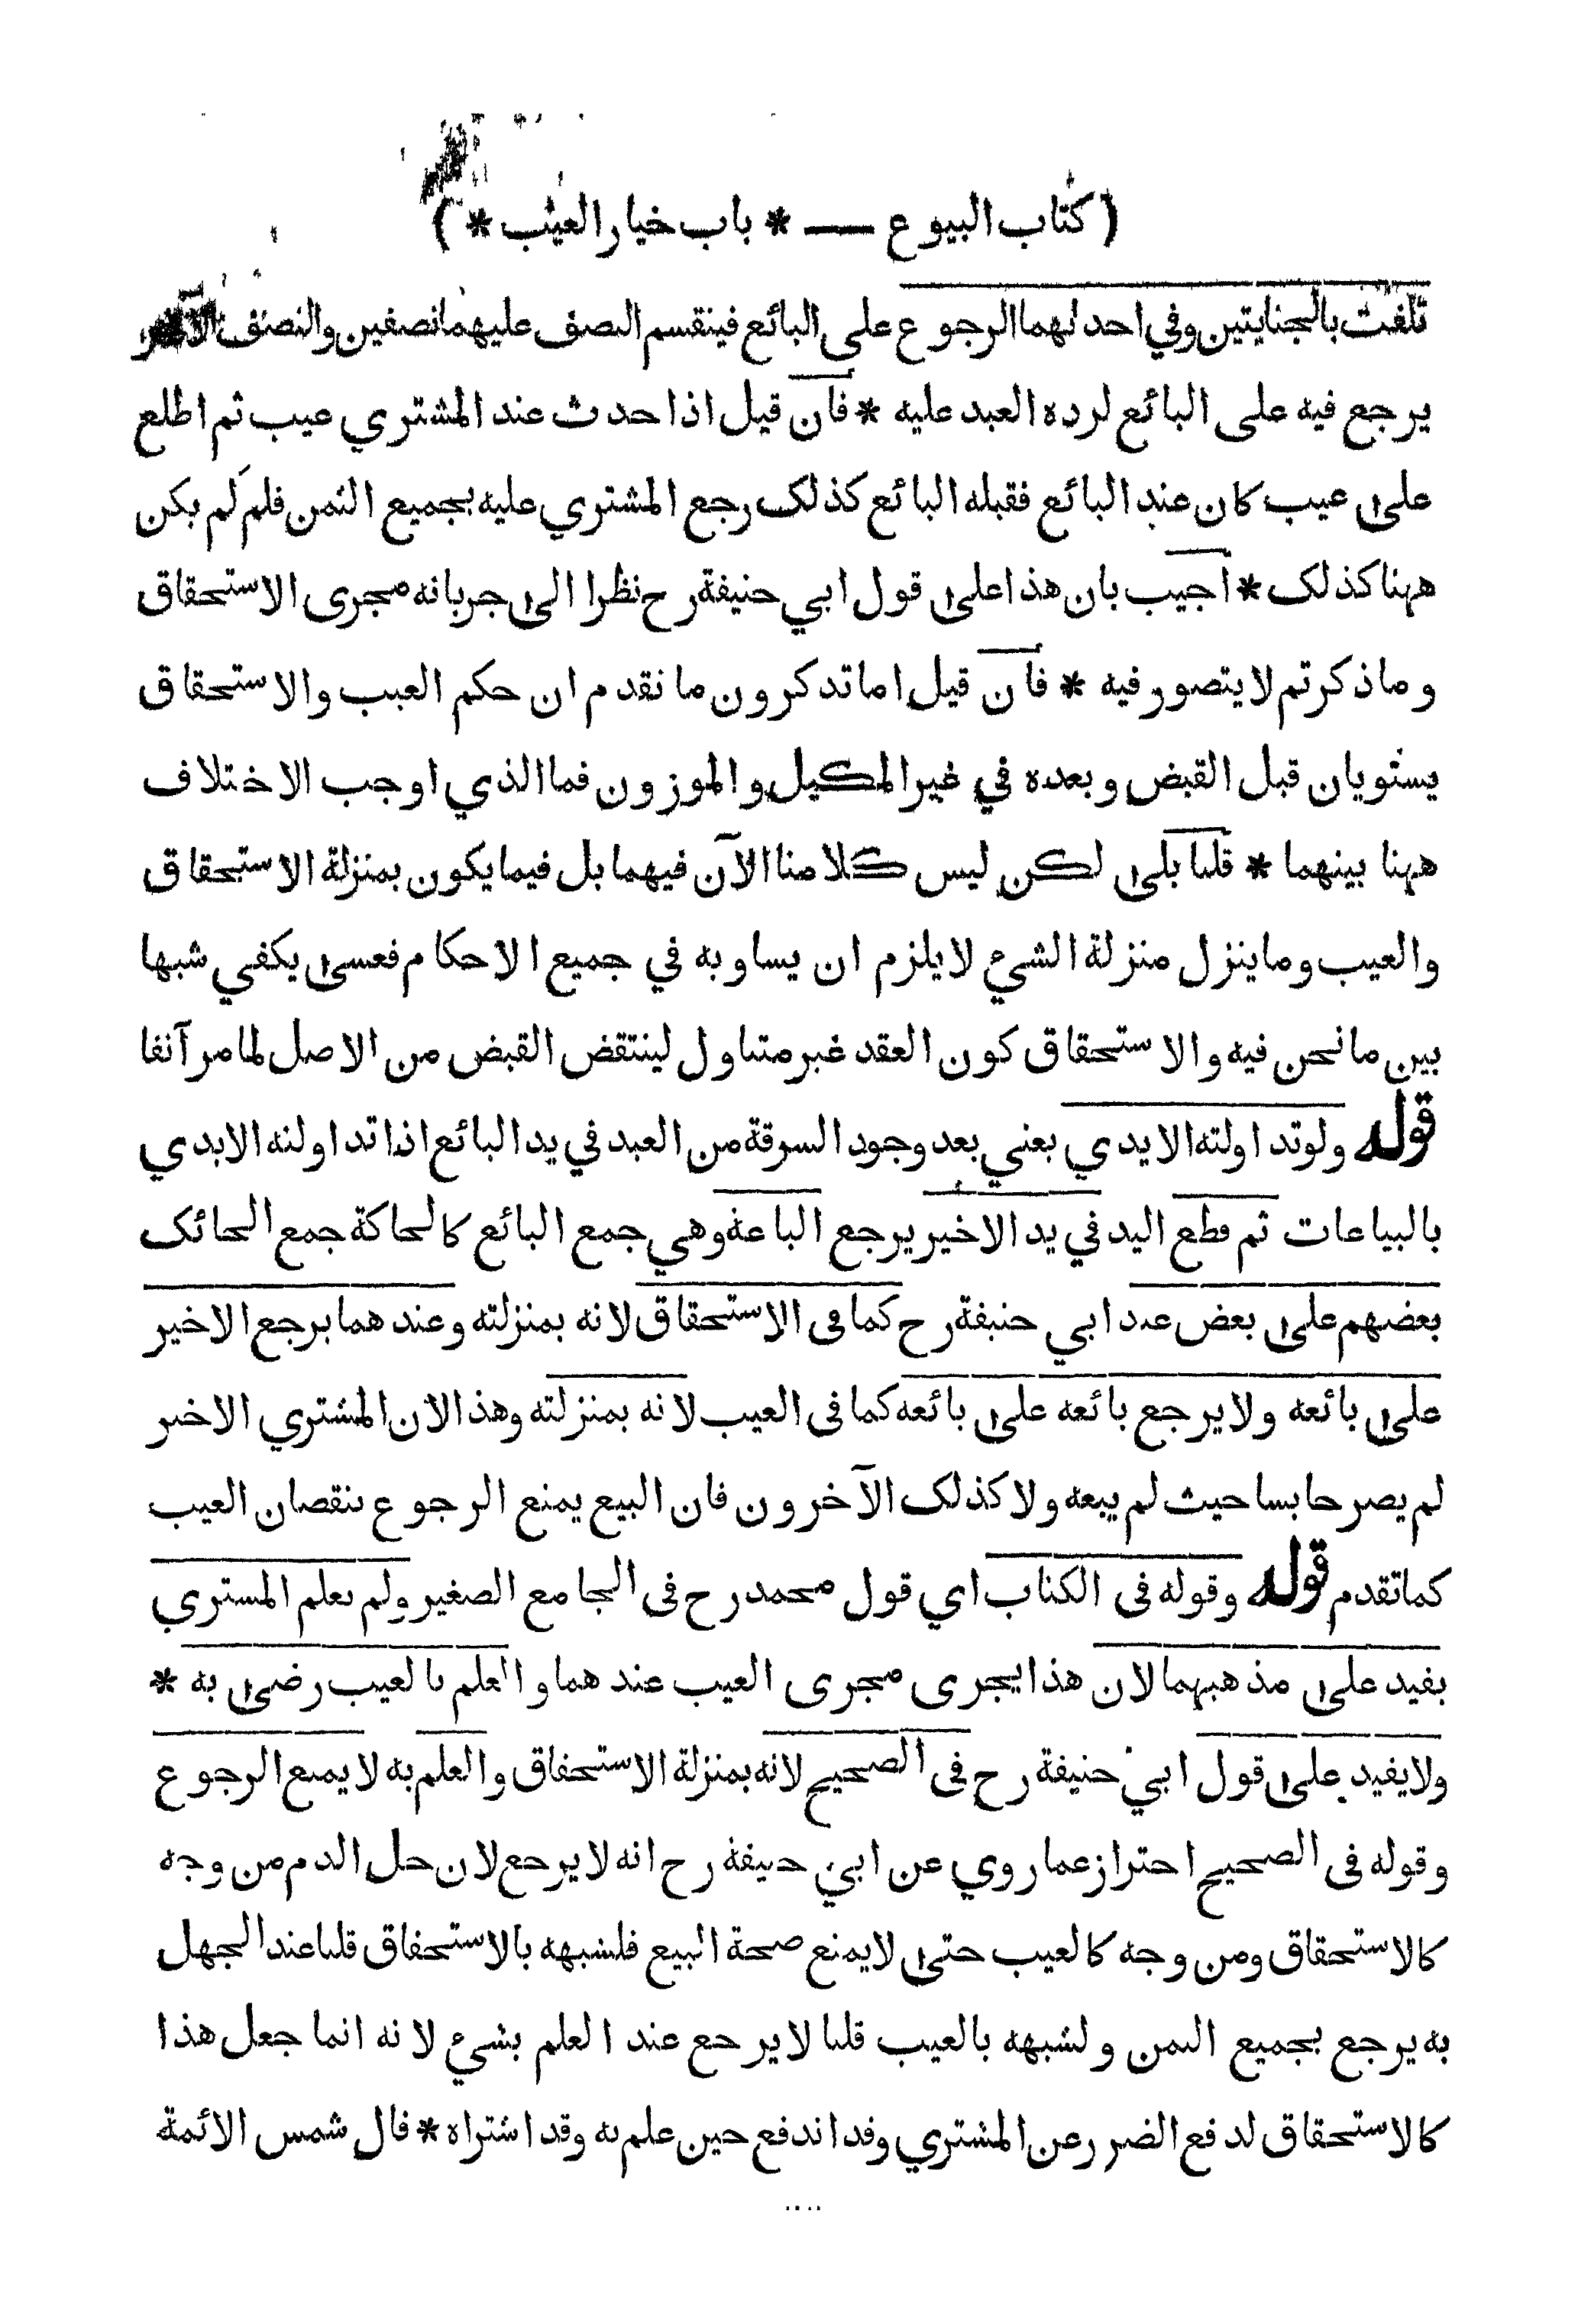 ( كتاب البيوع — * باب خيار العيب * )
تلفت بالجنايتين وفي احدٰهما الرجوع على البائع فينقسم النصف عليهما نصفين والنصف الآخر
يرجع فيه على البائع لرده العبد عليه * فان قيل اذا حدث عند المشتري عيب ثم اطلع
على عيب كان عند البائع فقبله البائع كذلك رجع المشتري عليه بجميع الثمن فلم لم يكن
ههنا كذلك * اجيب بان هذا على قول ابي حنيفة رح نظرا الى جريانه مجرى الاستحقاق
وما ذكرتم لا يتصور فيه * فان قيل اما تذكرون ما تقدم ان حكم العيب والاستحقاق
يستويان قبل القبض وبعده في غير المكيل والموزون فما الذي اوجب الاختلاف
ههنا بينهما * قلنا بلى لكن ليس كلامنا الآن فيهما بل فيما يكون بمنزلة الاستحقاق
والعيب وما ينزل منزلة الشيء لا يلزم ان يساويه في جميع الاحكام فعسى يكفي شبها
بين ما نحن فيه والاستحقاق كون العقد غير متناول لينتقض القبض من الاصل لما مر آنفا
قوله ولو تداولته الايدي يعني بعد وجود السرقة من العبد في يد البائع اذا تداولته الايدي
بالبياعات ثم قطع اليد في يد الاخير يرجع الباعة وهي جمع البائع كالحاكة جمع الحائك
بعضهم على بعض عند ابي حنيفة رح كما فى الاستحقاق لانه بمنزلته وعندهما يرجع الاخير
على بائعه ولا يرجع بائعه على بائعه كما فى العيب لانه بمنزلته وهذا لان المشتري الاخير
لم يصر حابسا حيث لم يبعه ولا كذلك الآخرون فان البيع يمنع الرجوع بنقصان العيب
كما تقدم قوله وقوله فى الكتاب اي قول محمد رح فى الجامع الصغير ولم يعلم المشتري
يفيد على مذهبهما لان هذا يجرى مجرى العيب عندهما والعلم بالعيب رضى به *
ولا يفيد على قول ابي حنيفة رح فى الصحيح لانه بمنزلة الاستحقاق والعلم به لا يمنع الرجوع
وقوله فى الصحيح احتراز عما روي عن ابي حنيفة رح انه لا يرجع لان حل الدم من وجه
كالاستحقاق ومن وجه كالعيب حتى لا يمنع صحة البيع فلشبهه بالاستحقاق قلنا عند الجهل
به يرجع بجميع الثمن ولشبهه بالعيب قلنا لا يرجع عند العلم بشيء لانه انما جعل هذا
كالاستحقاق لدفع الضرر عن المشتري وقد اندفع حين علم به وقد اشتراه * قال شمس الائمة